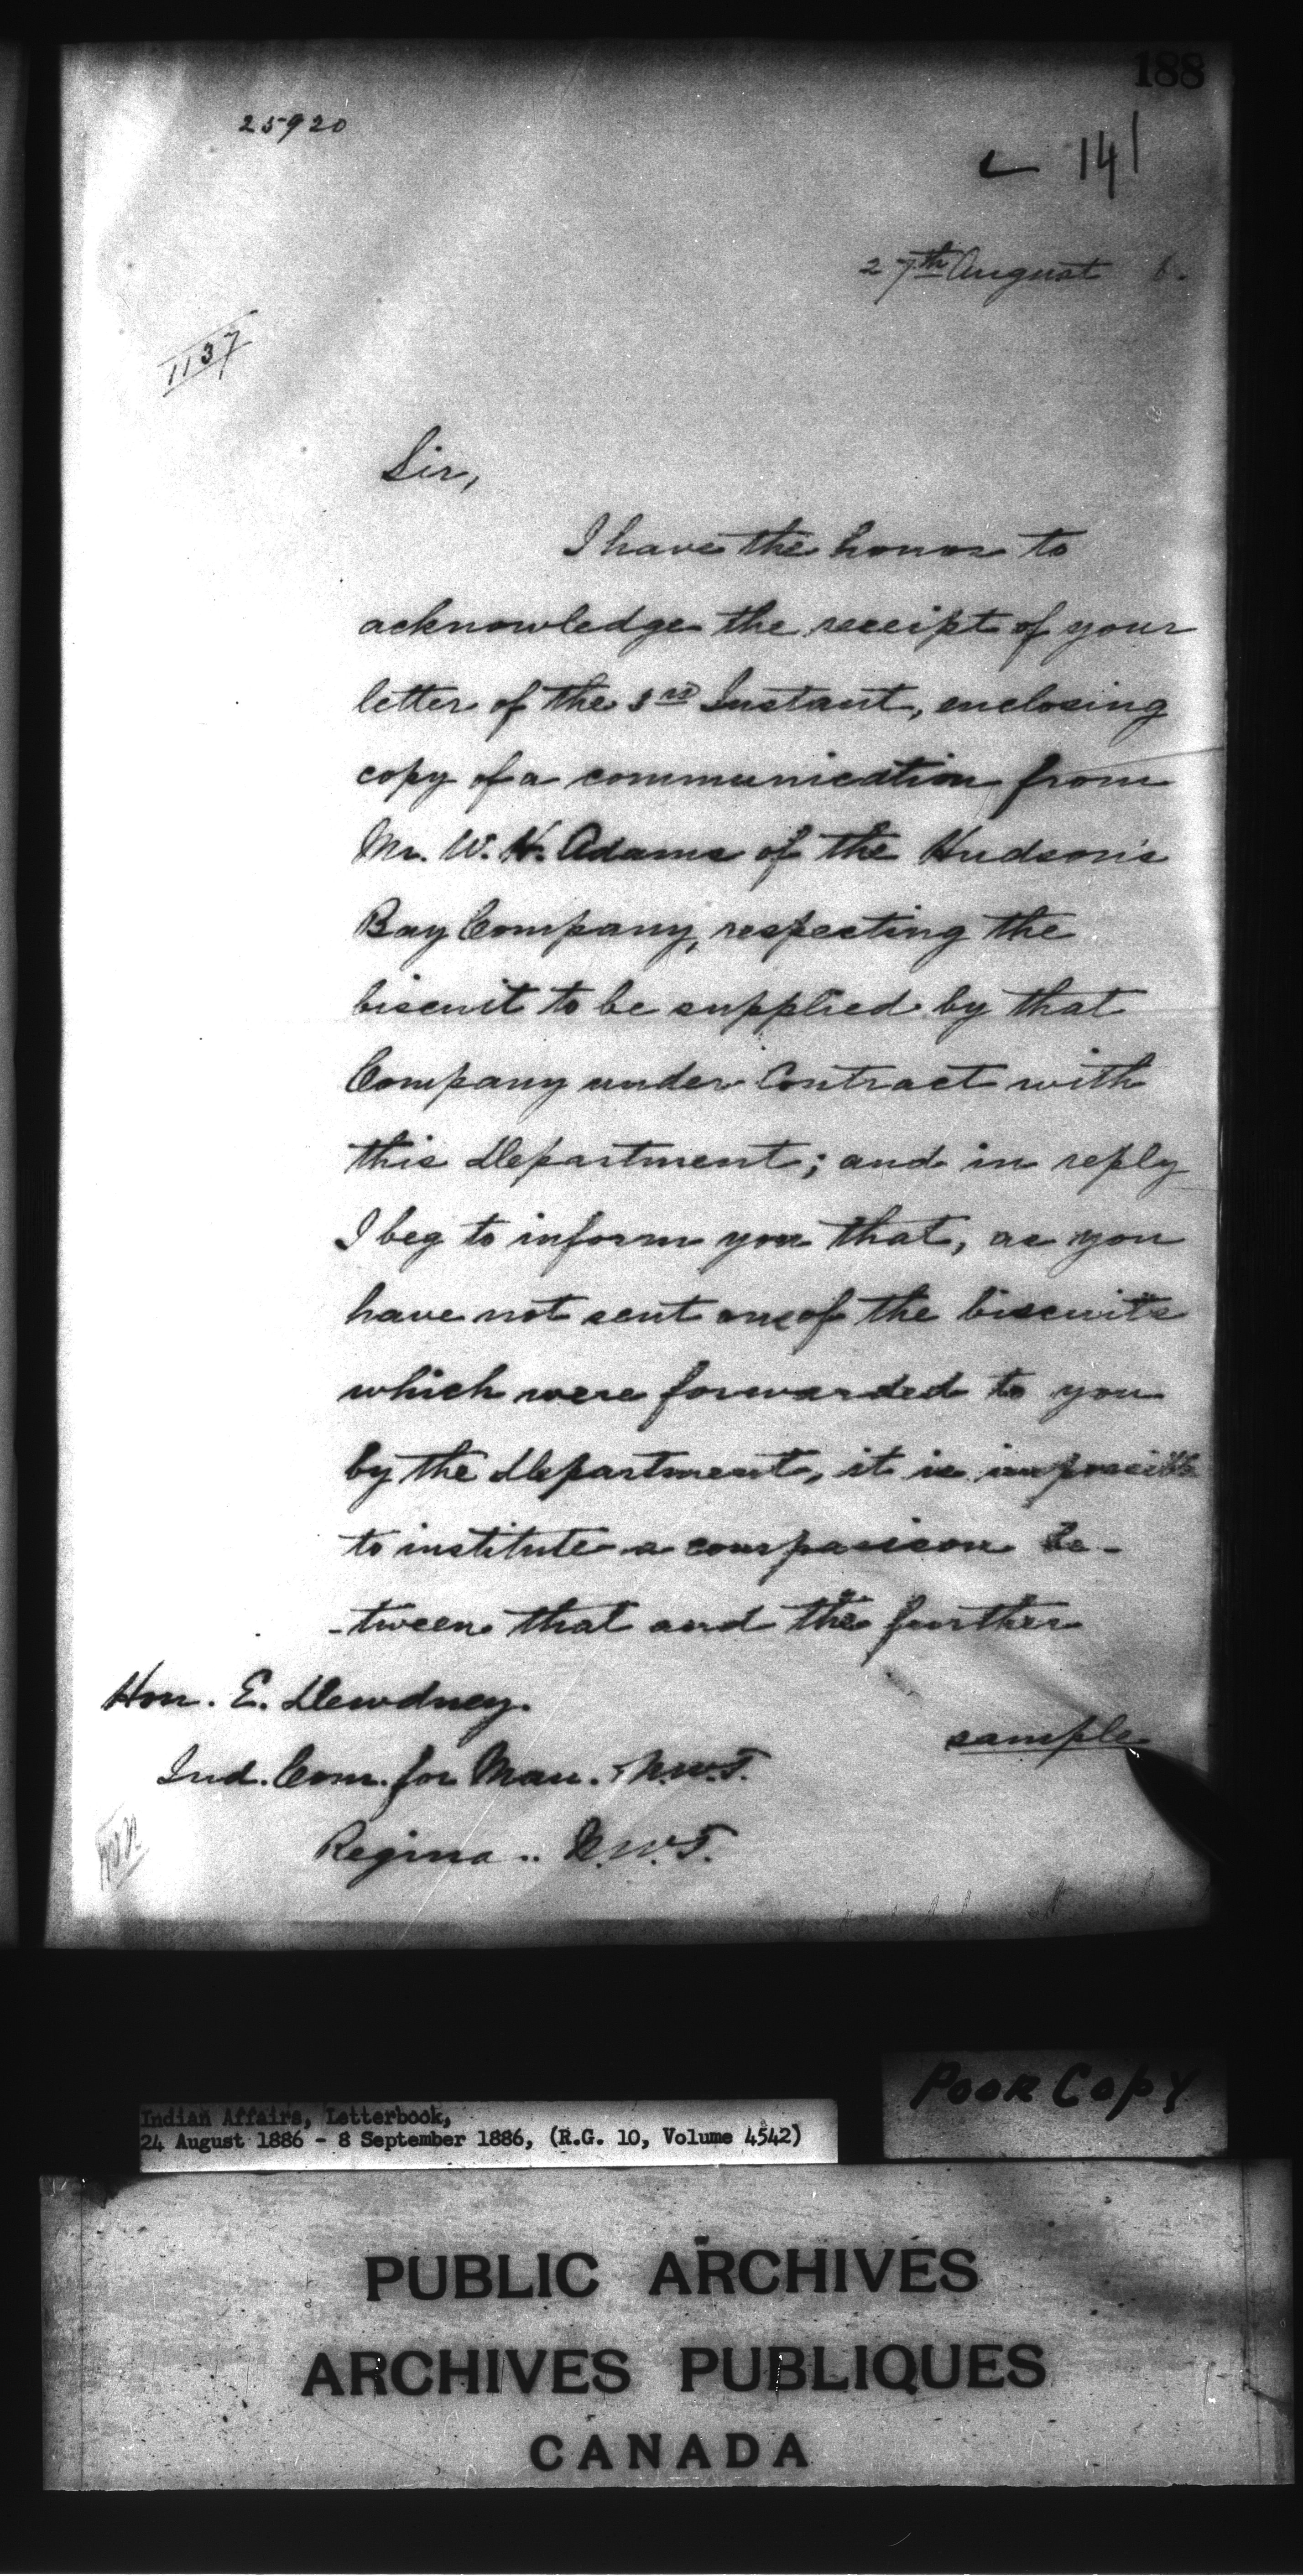 188
25920
L 141
27th August 6.
1137
Sir,
I have the honor to
acknowledge the receipt of your
letter of the 3rd Instant, enclosing
copy of a communication from
Mr. W. H. Adams of the Hudson's
Bay Company, respecting the
biscuit to be supplied by that
Company under Contract with
this Department; and in reply
I beg to inform you that, as you
have not sent one of the biscuits
which were forwarded to you
by the Department, it is impossible
to institute a comparison be-
-tween that and the further
Hon. E. Dewdney.
sample
Ind. Com. for Man. & N.W.T.
Regina .. N.W.T.
Poor Copy
Indian Affairs, Letterbook,
24 August 1886 - 8 September 1886, (R.G. 10, Volume 4542)
PUBLIC ARCHIVES
ARCHIVES PUBLIQUES
CANADA